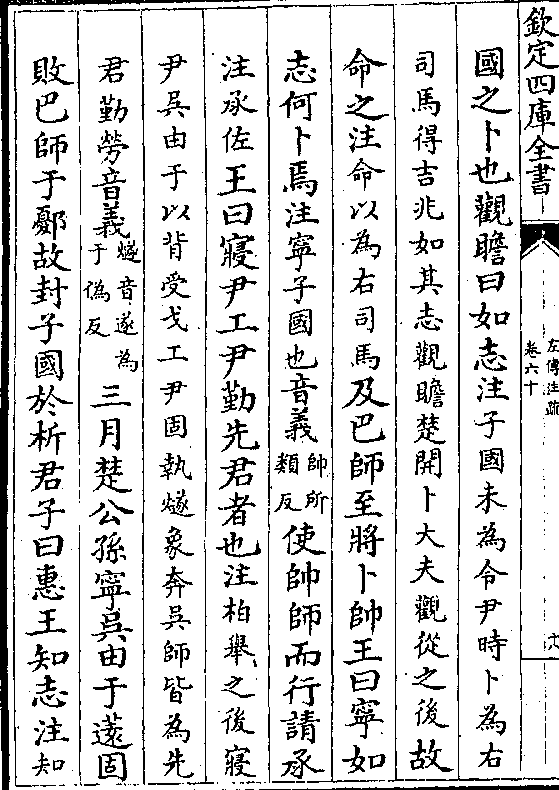 欽定四庫全書
左傳注疏
卷六十
國之卜也觀瞻曰如志注子國未為令尹時卜為右
司馬得吉兆如其志觀瞻楚開卜大夫觀從之後故
命之注命以為右司馬及巴師至將卜帥王曰寧如
志何卜焉注寧子國也音義帥所類反使帥師而行請承
注承佐王曰寢尹工尹勤先君者也注柏舉之後寢
尹吳由于以背受戈工尹固執燧象奔吳師皆為先
君勤勞音義燧音遂為于偽反三月楚公孫寧吳由于薳固
敗巴師于鄾故封子國於析君子曰惠王知志注知